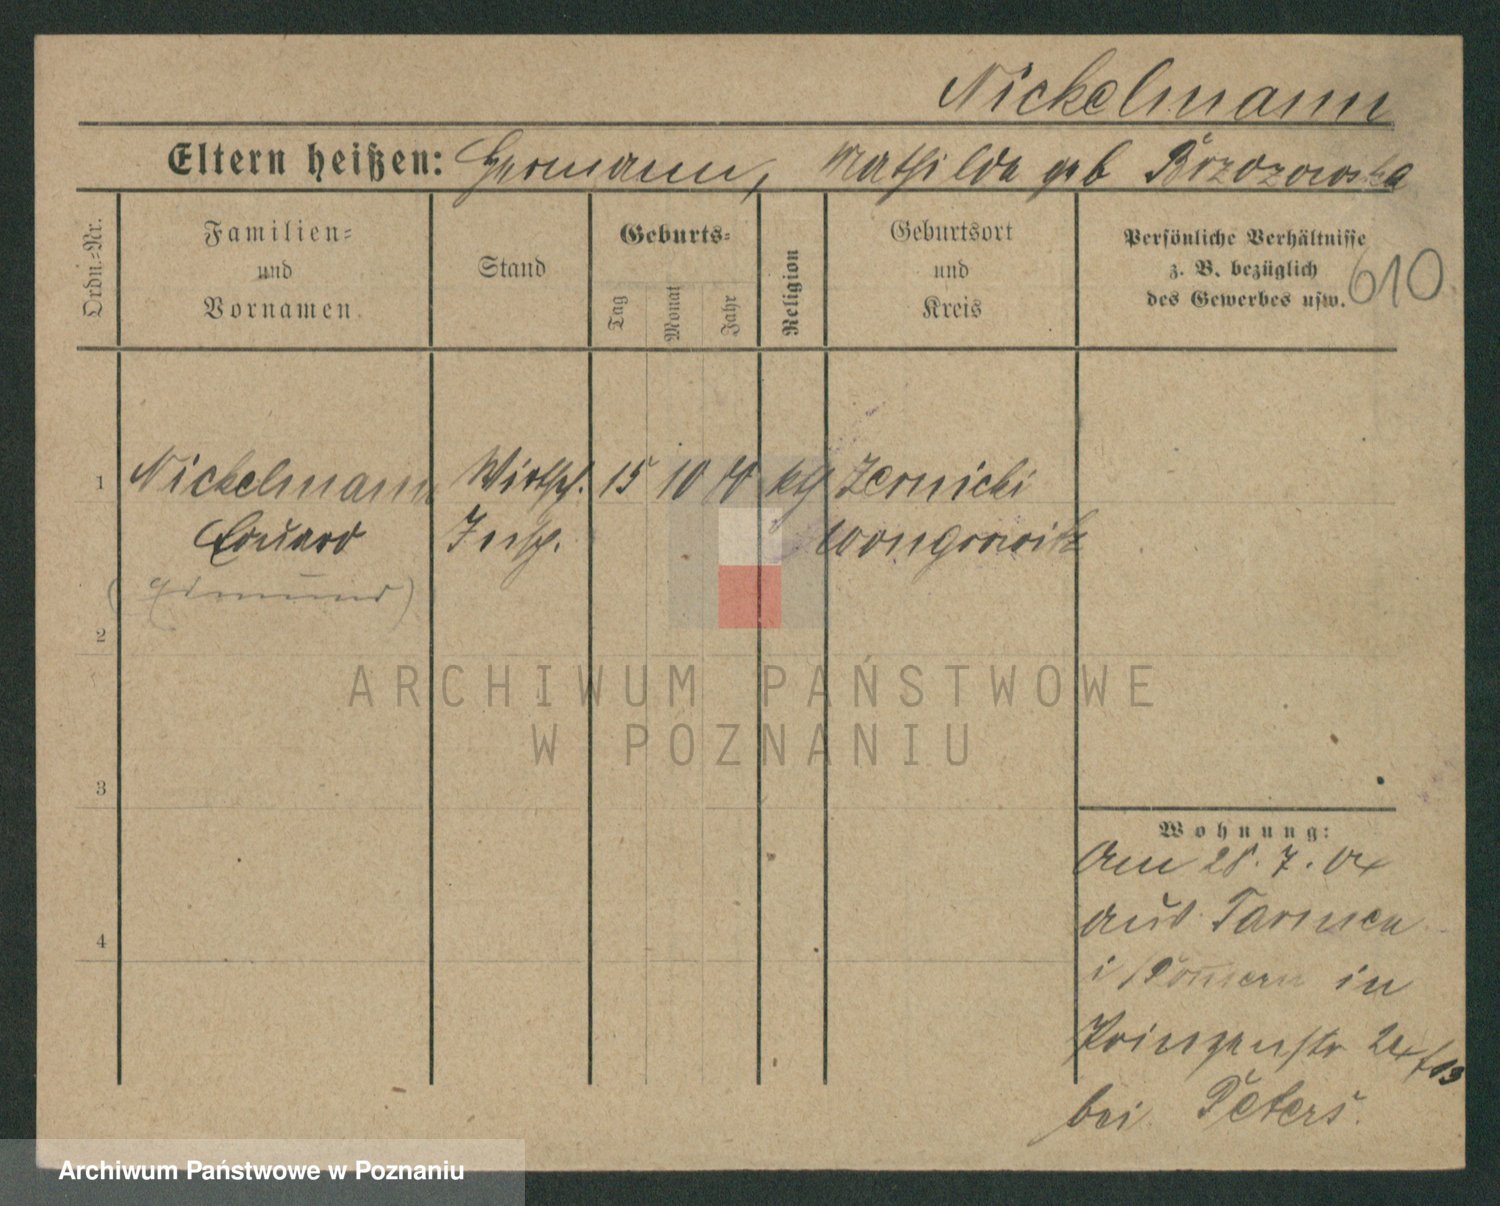 Nickelmann
Eltern heißen: Hermann, Mathilde geb Brzozowska
Ordn.-Nr.
Familien-
und
Vornamen
Stand
Geburts-
Tag
Monat
Jahr
Religion
Geburtsort
und
Kreis
Persönliche Verhältnisse
z. B. bezüglich
des Gewerbes usw.
610
1 Nickelmann Wirtsch. 15 10 70 kth Zernicki
Eduard Insp. Wongrowitz
(Edmund)
2
3
4
ARCHIWUM PAŃSTWOWE
W POZNANIU
Wohnung:
Am 28. 7. 04
aus
i Pom̅ern in
Prinzenstr
bei Peters.
Archiwum Państwowe w Poznaniu